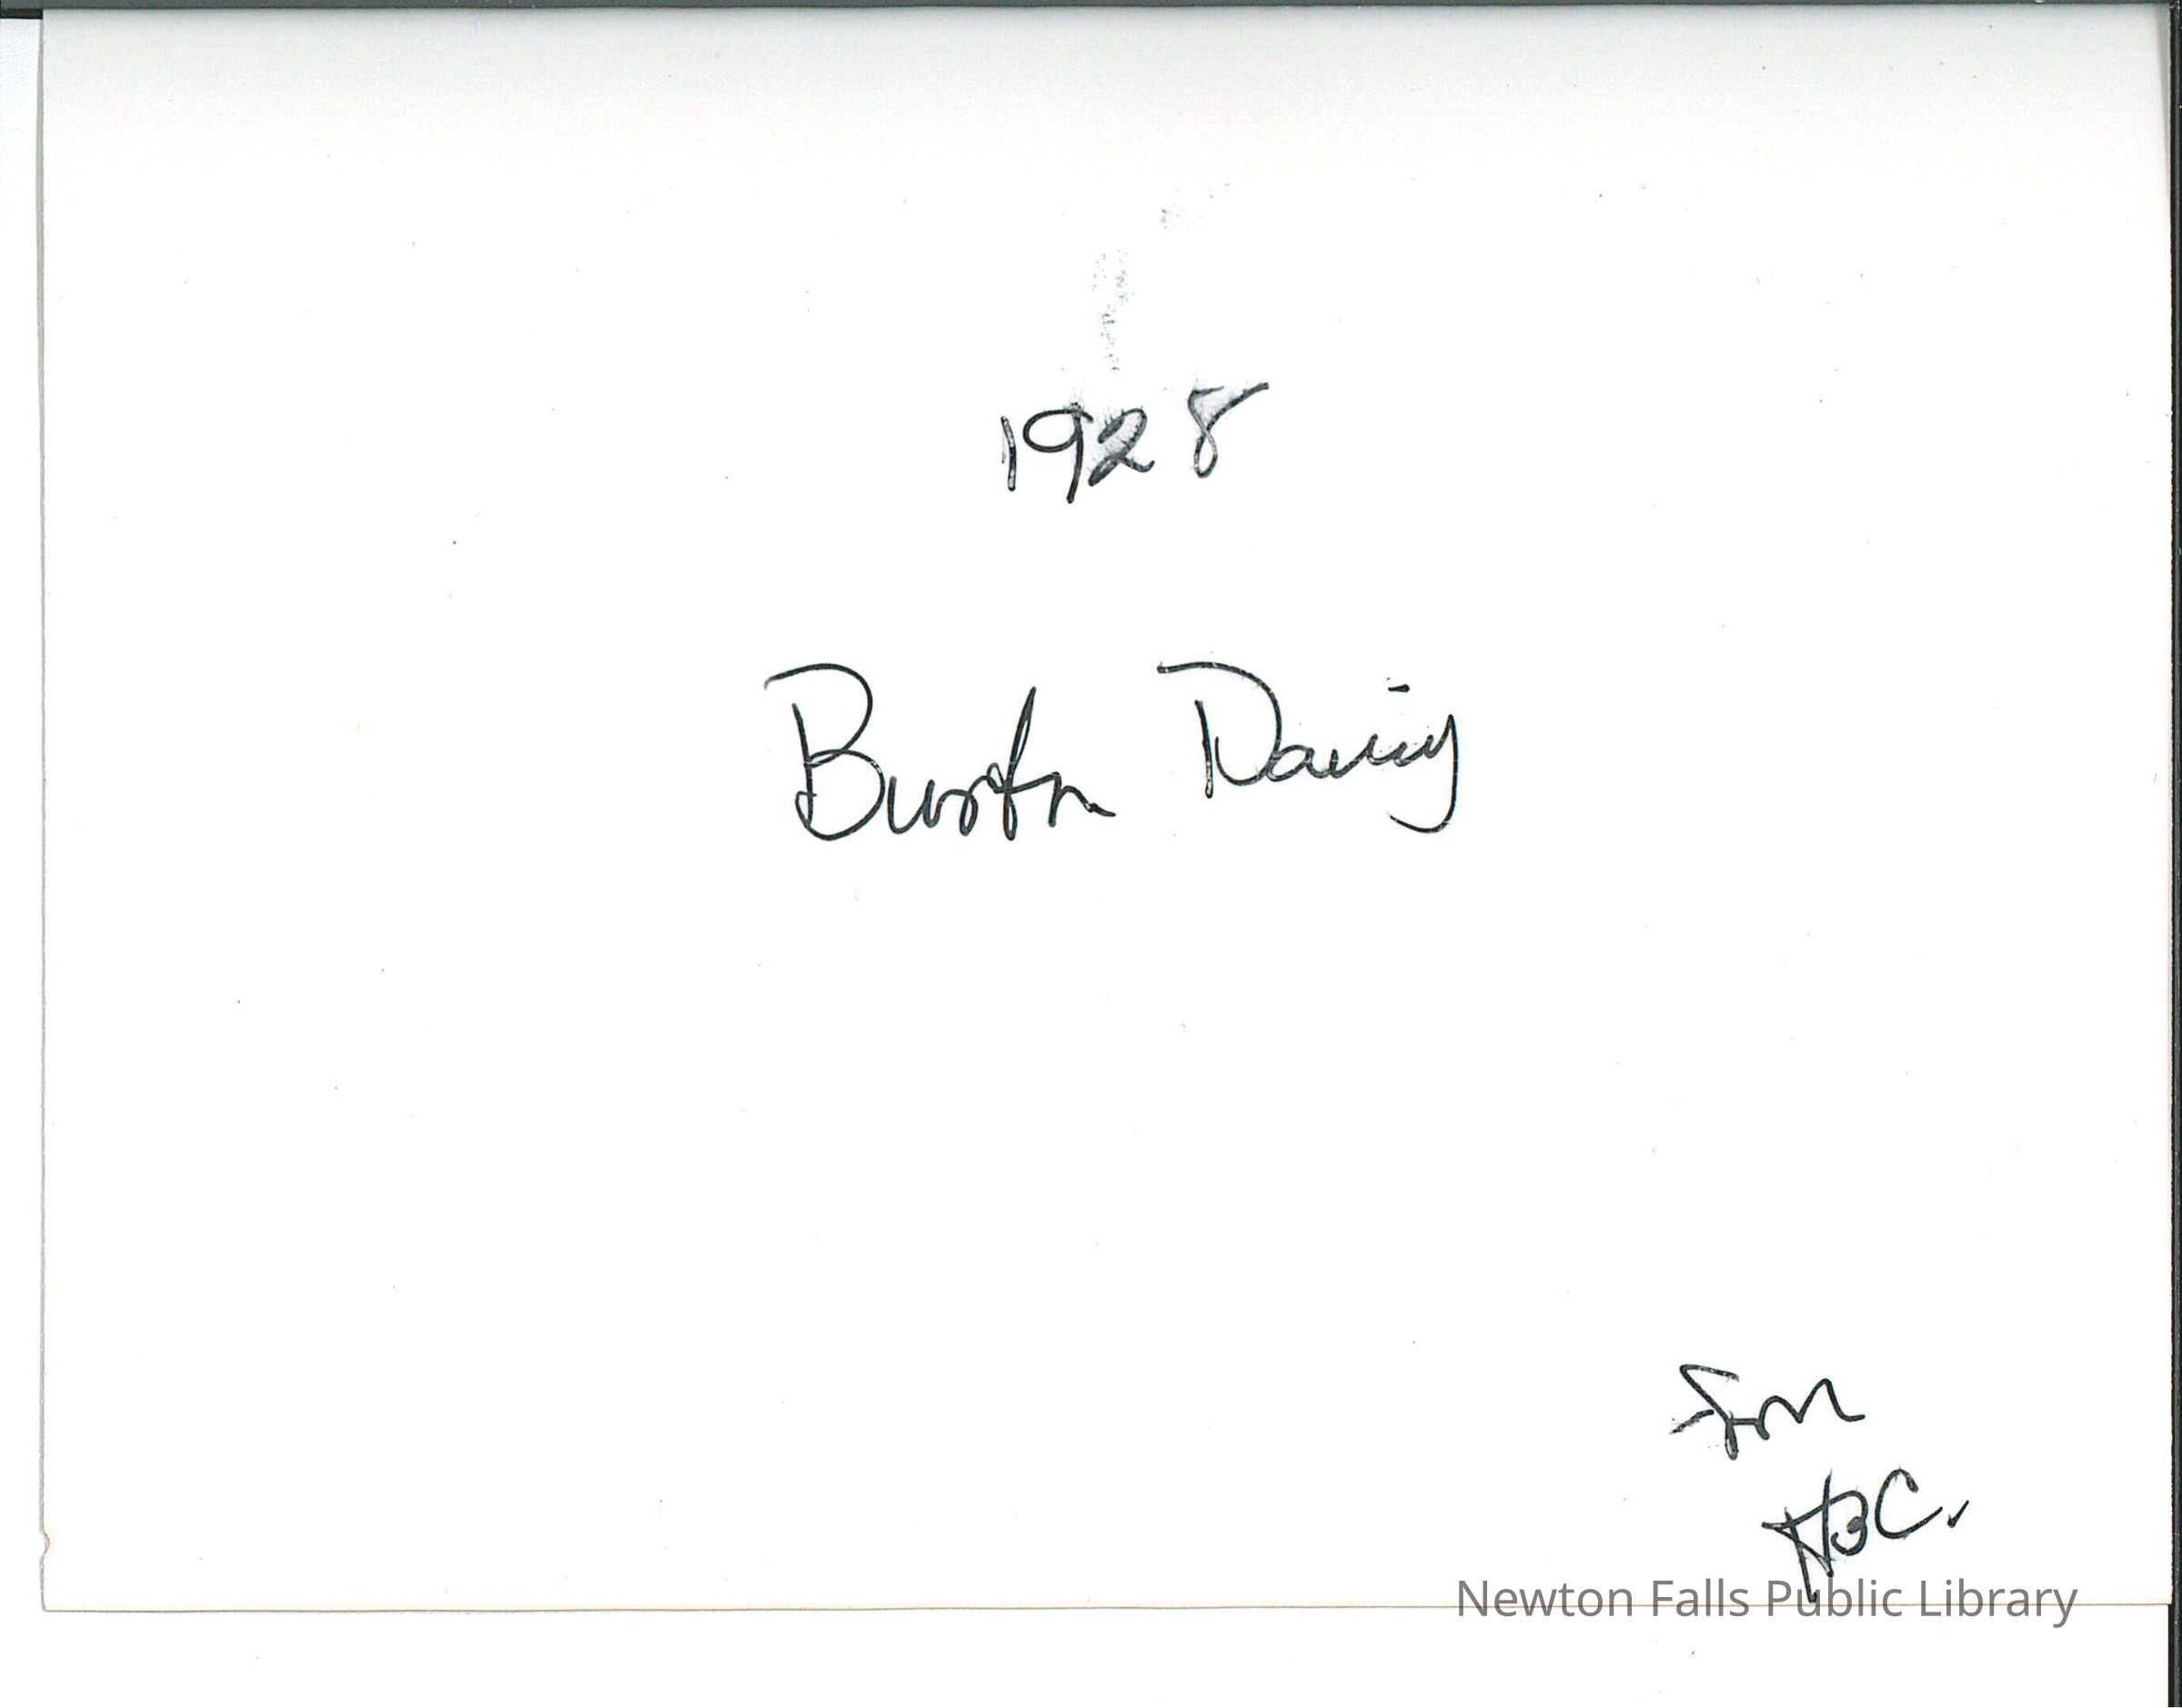 1928
Burton Daniy
From
ABC.
Newton Falls Public Library